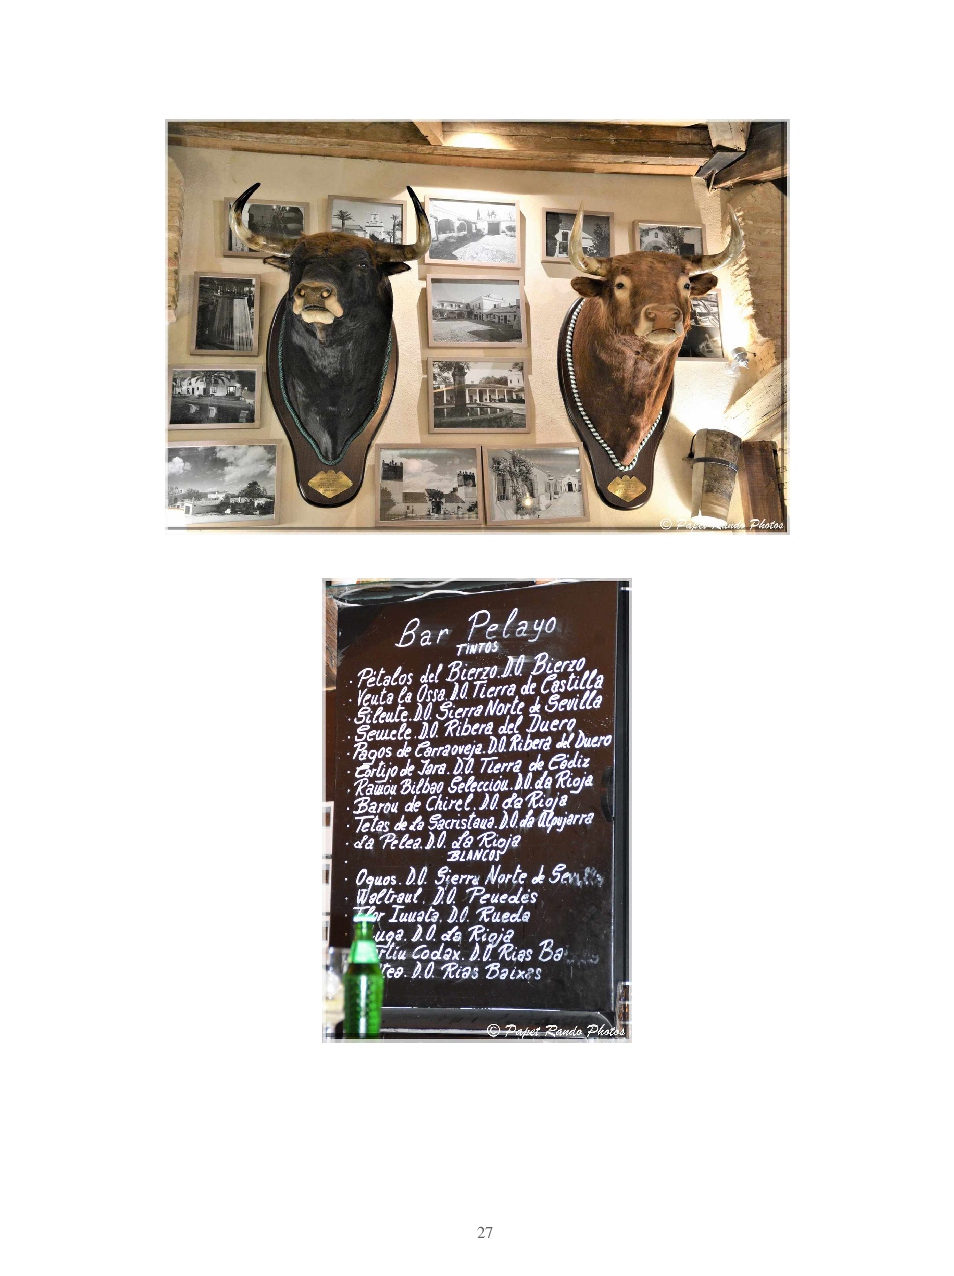 © Papet Rando Photos
Bar Pelayo
TINTOS
· Pétalos del Bierzo. D.O Bierzo
· Venta la Ossa. D.O. Tierra de Castilla
· Silente. D.O. Sierra Norte de Sevilla
· Semele. D.O. Ribera del Duero
· Pagos de Carraoveja. D.O. Ribera del Duero
· Cortijo de Jara. D.O. Tierra de Cádiz
· Ramon Bilbao Selección. D.O. La Rioja
· Baron de Chirel. D.O. La Rioja
· Tetas de La Sacristana. D.O. La Alpujarra
· La Pelea. D.O. La Rioja
BLANCOS
· D.O. Sierra Norte de
· Waltraul. D.O. Penedés
Innata. D.O. Rueda
D.O. La Rioja
Codax. D.O. Rias
D.O. Rias Baixas
© Papet Rando Photos
27